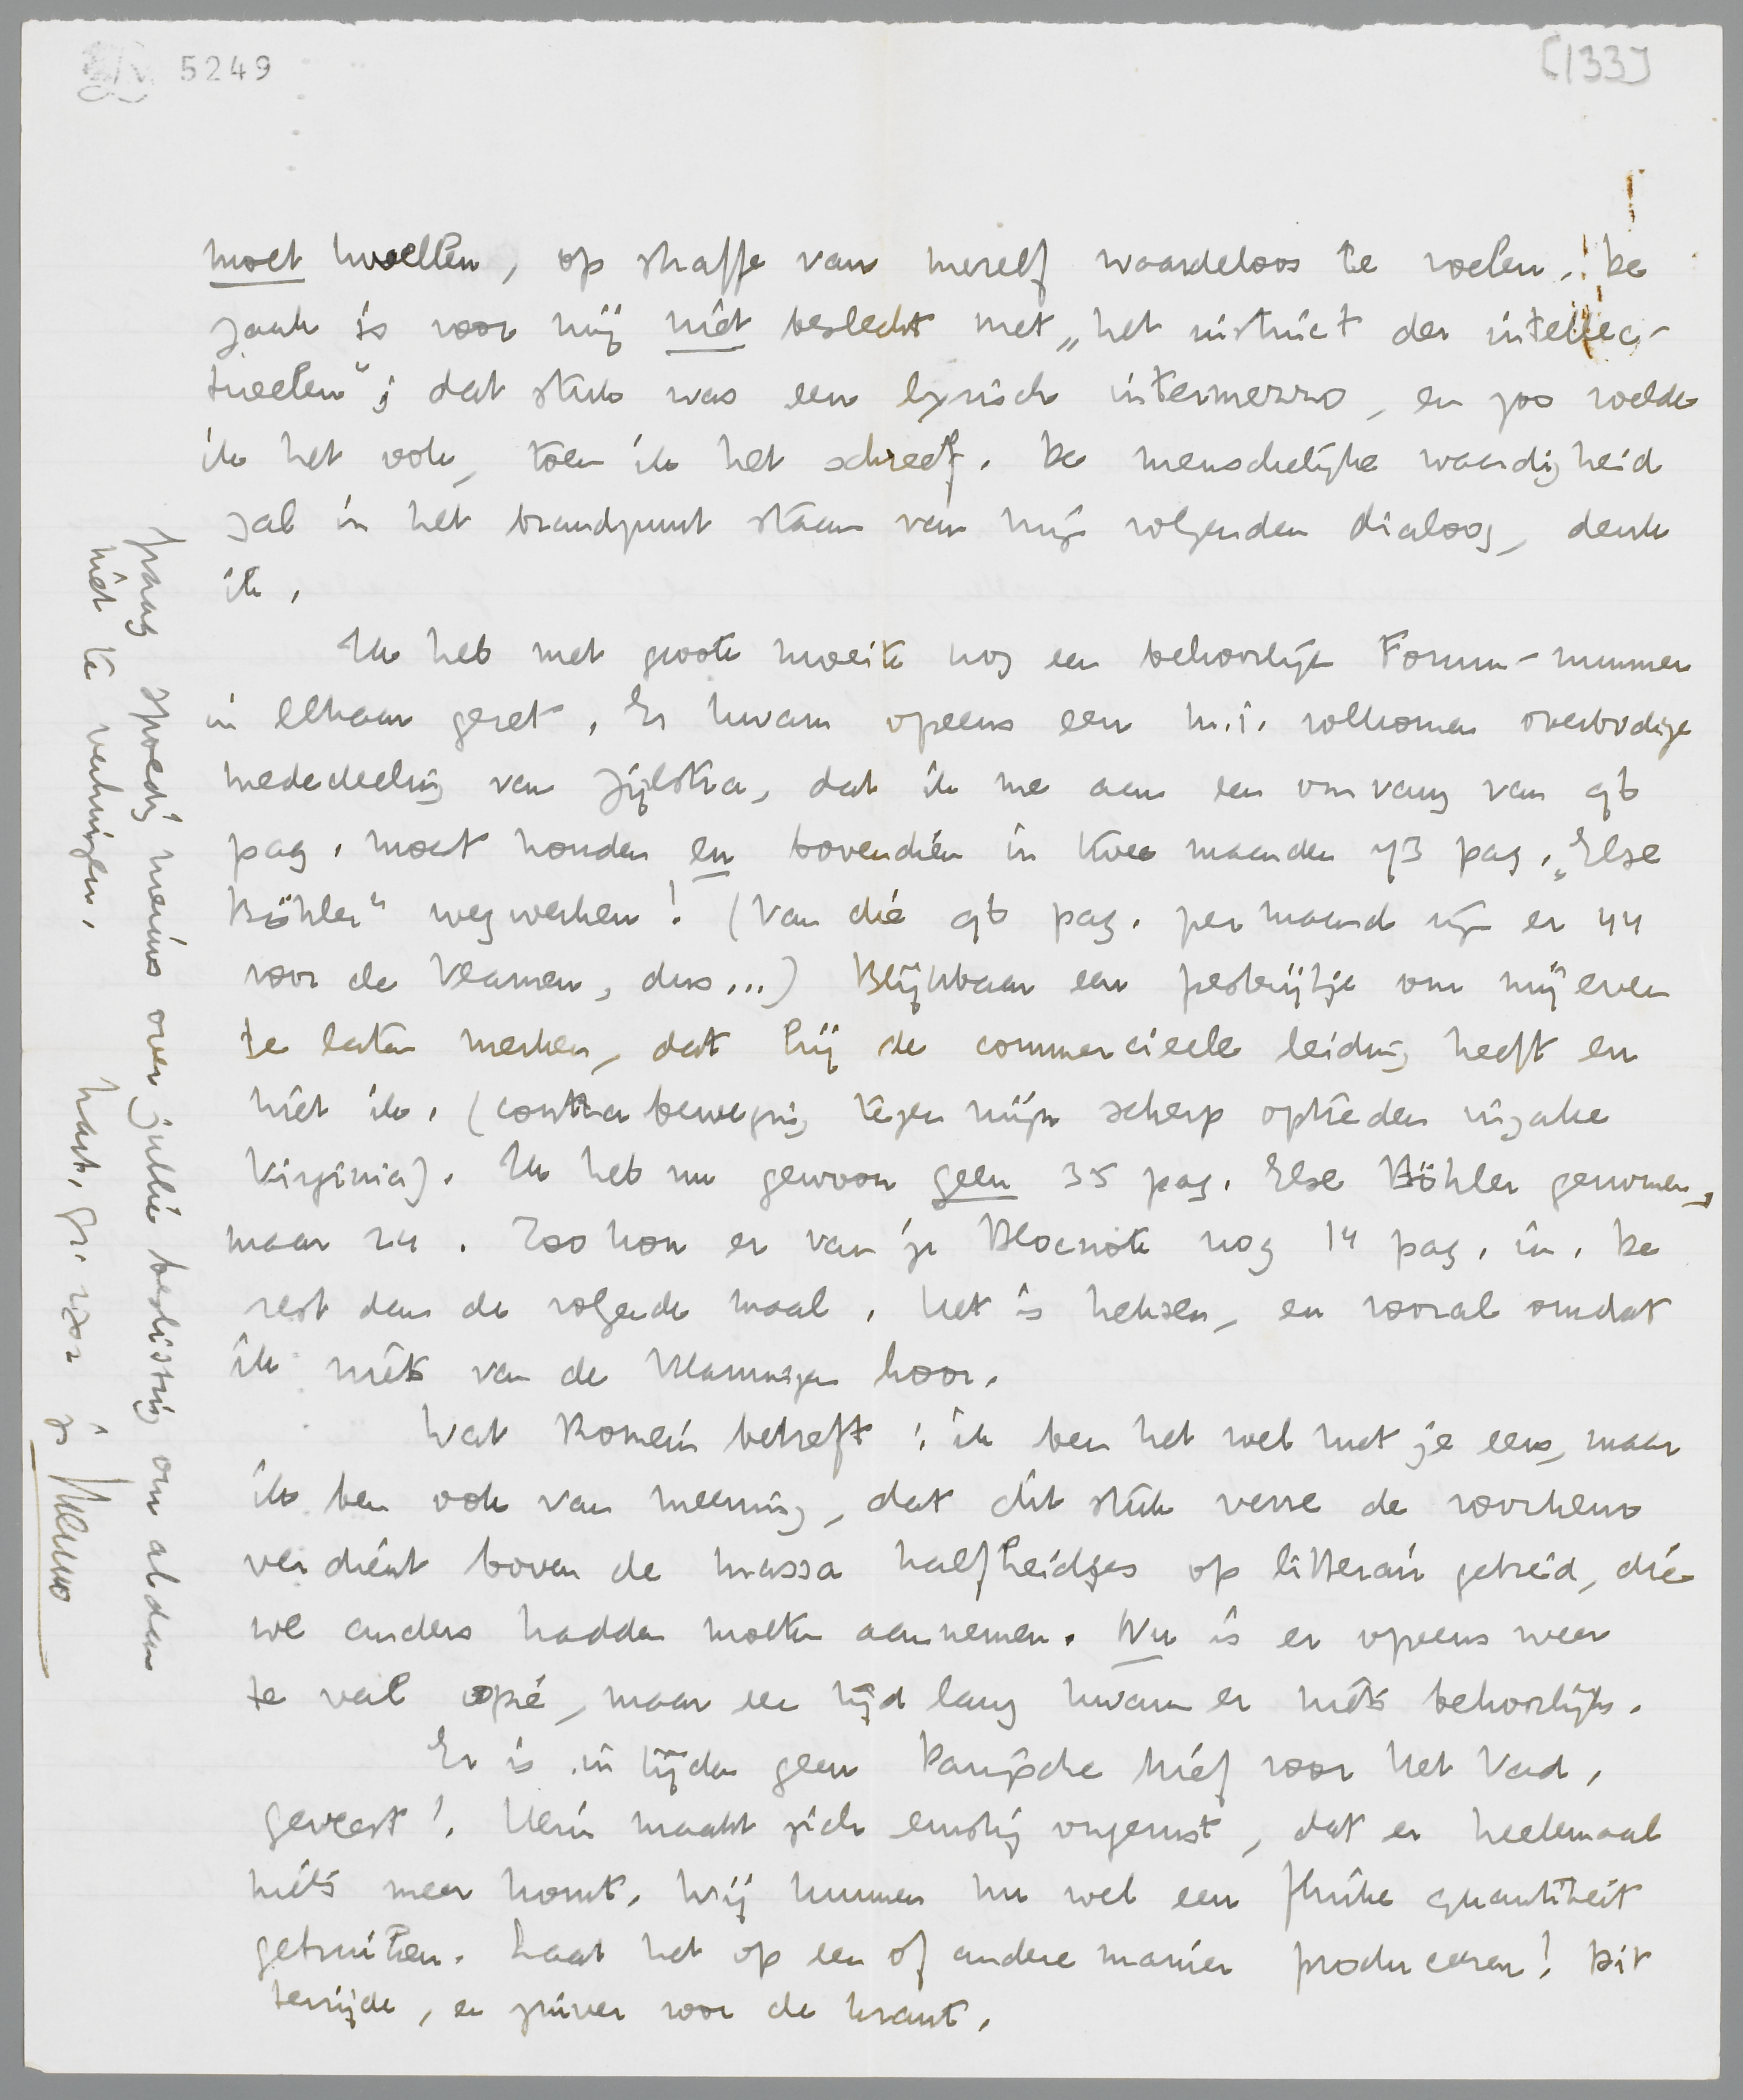 5249
[133]
moet kwellen, op straffe van mezelf waardeloos te voelen. De
zaak is voor mij niet beslecht met „het instinct der intellec-
tueelen"; dat stuk was een lyrisch intermezzo, en zoo voelde
ik het ook, toen ik het schreef. De menschelijke waardigheid
zal in het brandpunt staan van mijn volgenden dialoog, denk
ik.
Ik heb met groote moeite nog een behoorlijk Forum-nummer
in elkaar gezet. Er kwam opeens een m.i. volkomen overbodige
mededeeling van Zijlstra, dat ik me aan een omvang van 96
pag. moest houden en bovendien in twee maanden 73 pag. „Else
Böhler" wegwerken! (Van die 96 pag. per maand zijn er 44
voor de Vlamen, dus...) Blijkbaar een pesterijtje om mij even
te laten merken, dat hij de commercieele leiding heeft en
niet ik. (contra beweging tegen mijn scherp optreden inzake
Virginia). Ik heb nu gewoon geen 35 pag. Else Böhler genomen,
maar 24. Zoo kon er van je Blocnote nog 14 pag. in. De
rest dan de volgende maal. Het is heksen, en vooral omdat
ik niets van de Vlamingen hoor.
Wat Romein betreft: ik ben het wel met je eens, maar
ik ben ook van meening, dat dit stuk verre de voorkeur
verdient boven de massa halfheidjes op litterair gebied, die
we anders hadden moeten aannemen. Nu is er opeens weer
te veel copie, maar een tijd lang kwam er niets behoorlijks.
Er is in tijden geen Parijsche brief voor het Vad.
geweest! Hein maakt zich ernstig ongerust, dat er heelemaal
niets meer komt. Wij kunnen nu wel een flinke quantiteit
gebruiken. Laat het op een of andere manier produceeren! Dit
terzijde, en zuiver voor de krant.
graag spoedig nieuws over jullie beslissing om al dan
niet te verhuizen.
hart. gr. voor
je Menno